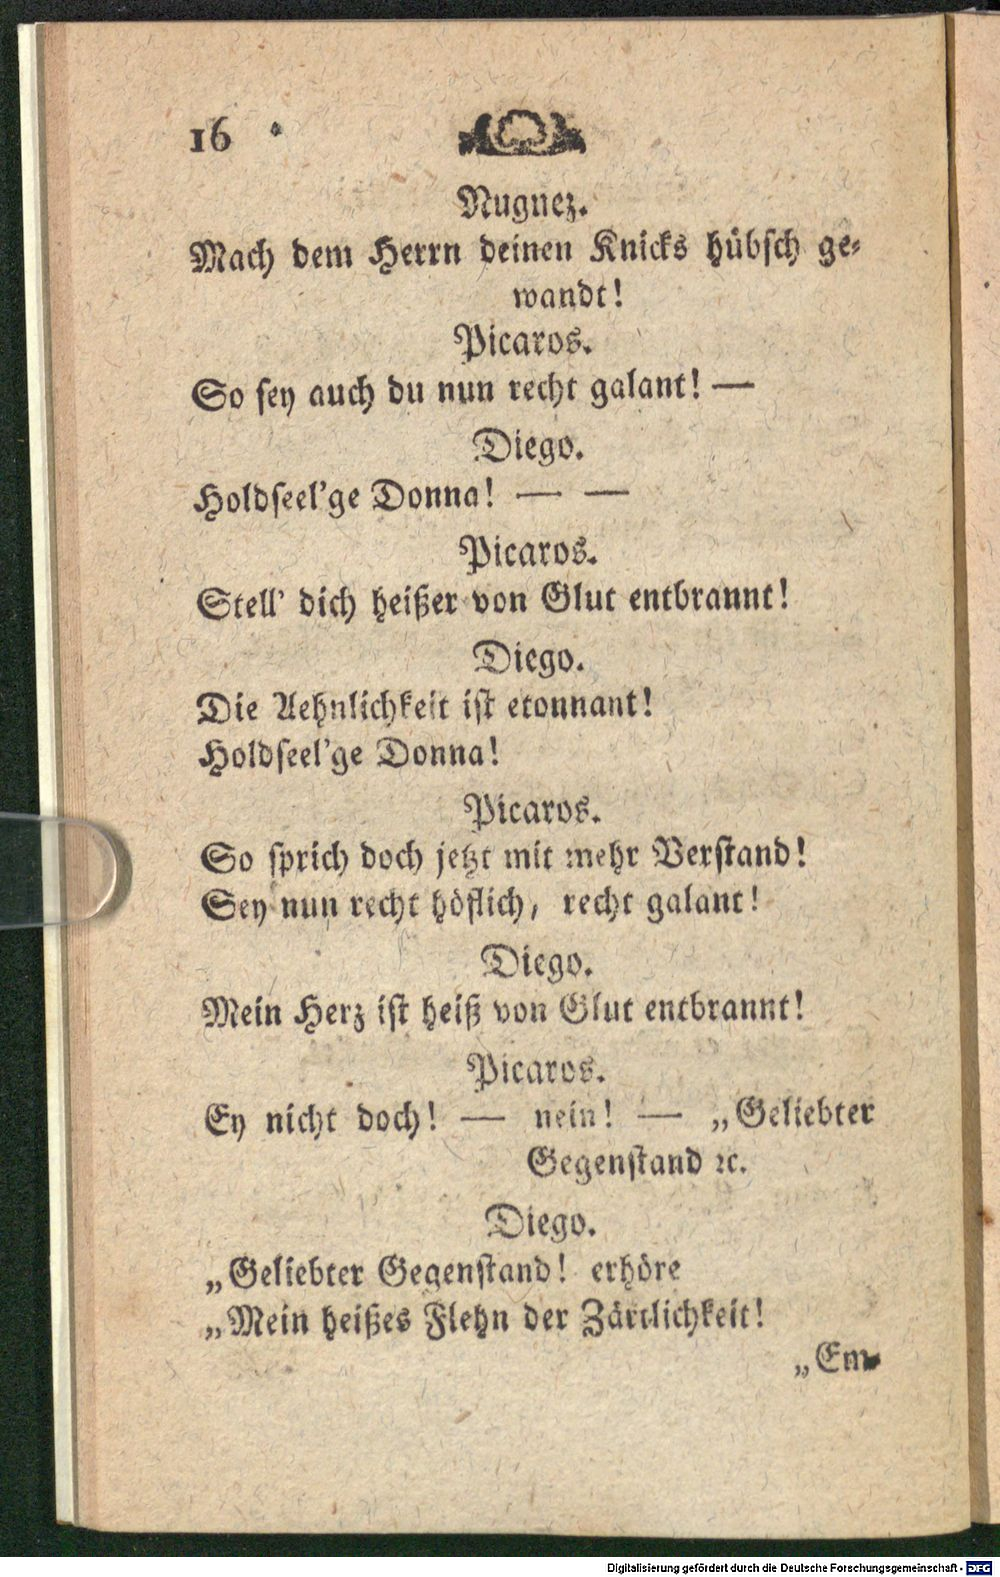 16
Nugnez.
Mach dem Herrn deinen Knicks hübsch ge-
wandt!
Picaros.
So sey auch du nun recht galant! —
Diego.
Holdseel'ge Donna! — —
Picaros.
Stell' dich heißer von Glut entbrannt!
Diego.
Die Aehnlichkeit ist etonnant!
Holdseel'ge Donna!
Picaros.
So sprich doch jetzt mit mehr Verstand!
Sey nun recht höflich, recht galant!
Diego.
Mein Herz ist heiß von Glut entbrannt!
Picaros.
Ey nicht doch! — nein! — „Geliebter
Gegenstand ꝛc.
Diego.
„Geliebter Gegenstand! erhöre
„Mein heißes Flehn der Zärtlichkeit!
„Em-
Digitalisierung gefördert durch die Deutsche Forschungsgemeinschaft - DFG